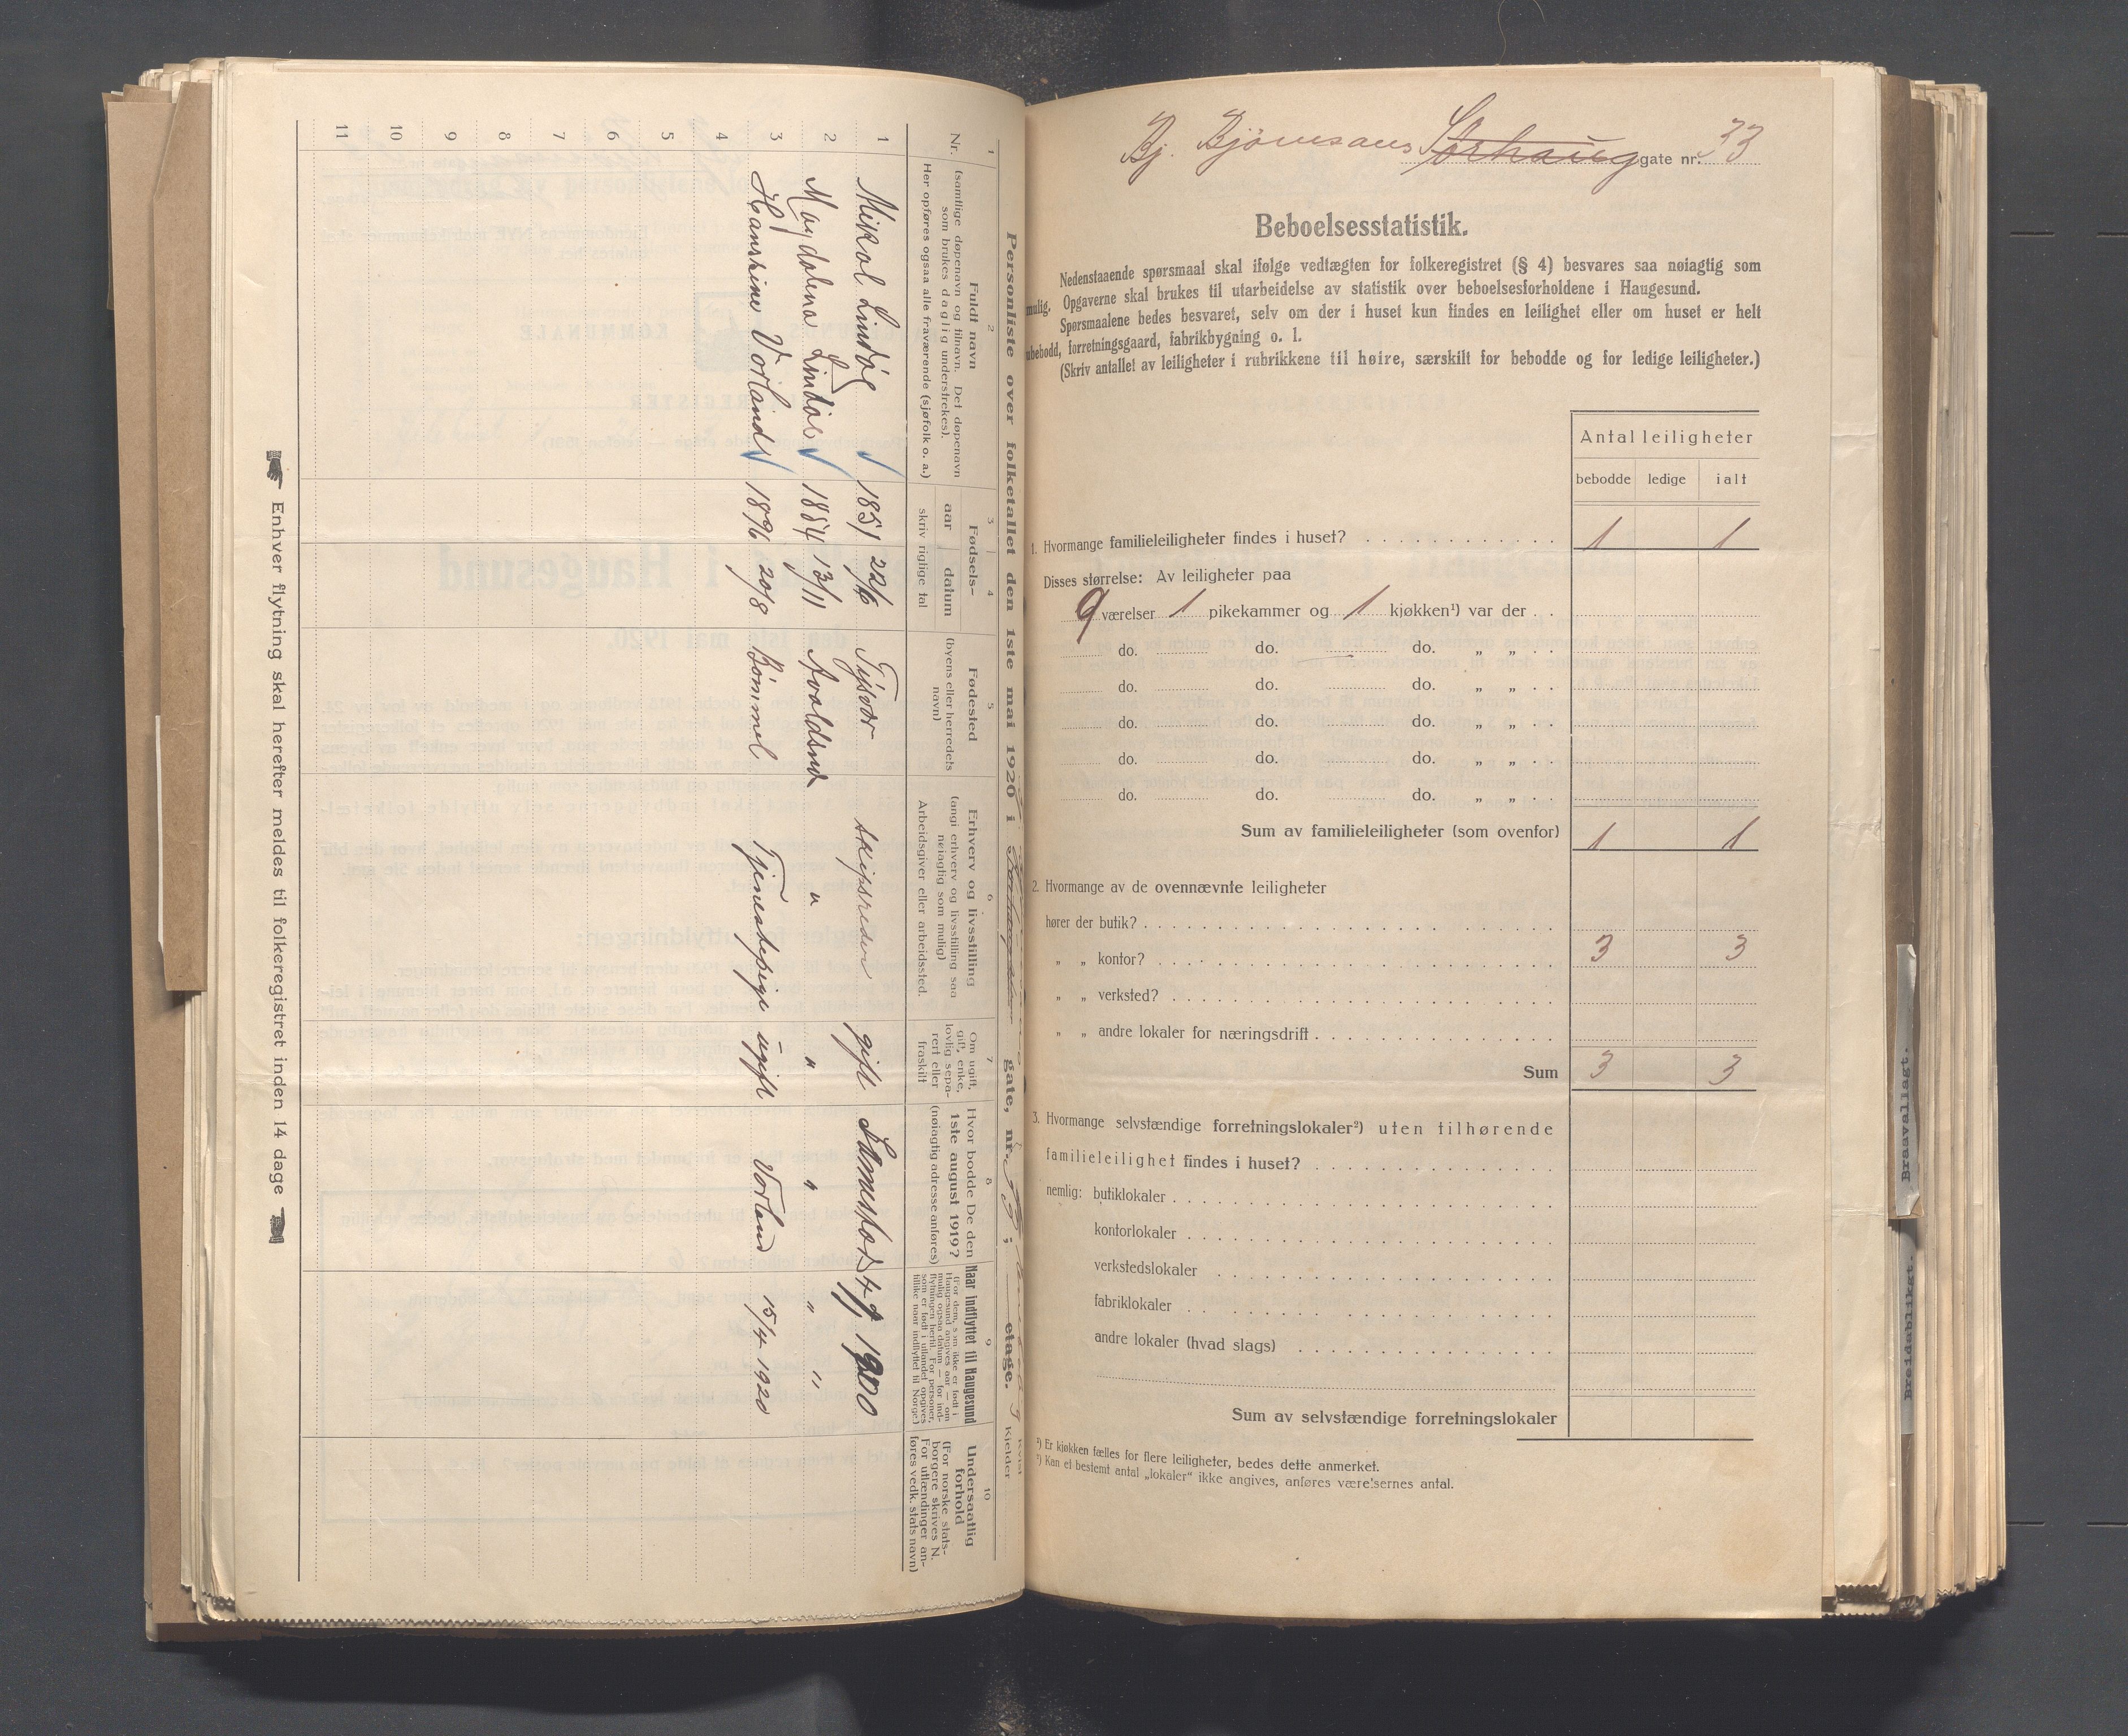 Personliste over folketallet den 1ste mai 1920 i gate, nr. ; etage.
Kvist
Kjelder
1
Nr.
2
Fuldt navn
(samtlige døpenavn og tilnavn. Det døpenavn
som brukes daglig understrekes).
Her opføres ogsaa alle fraværende (sjøfolk o. a.)
3 4
Fødsels-
aar datum
skriv riglige tal
5
Fødested
(byens eller herredets
navn)
6
Erhverv og livsstilling
(angi erhverv og livsstilling saa
nøiagtig som mulig)
Arbeidsgiver eller arbeidssted.
7
Om ugift,
gift, enke,
lovlig sepa-
rert eller
fraskilt
8
Hvor bodde De den
1ste august 1919?
(nøiagtig adresse anføres)
9
Naar indflyttet til Haugesund
(For dem, som ikke er født i
Haugesund angives aar — om
mulig ogsaa datum — for ind-
flytningen hertil. For personer,
som er født i utlandet opgives
tillike naar indflyttet til Norge.)
10
Undersaatlig
forhold
(For norske stats-
borgere skrives N.
For utlændinger an-
føres vedk. stats navn)
1 Mikal Lindøe 1851 22/6 Tysvær skipsreder gift 1900
2 Magdalena Lindøe 1854 13/11 Avaldsnes " " " " "
3 Hansine Vorland 1896 20/8 Bömmel Tjenestepige ugift Vorland 15/4 1920
4
5
6
7
8
9
10
11
Enhver flytning skal herefter meldes til folkeregistret inden 14 dage
Bj. Bjørnsons Sørhaug gate nr. 33
Beboelsesstatistik.
Nedenstaaende spørsmaal skal ifølge vedtægten for folkeregistret (§ 4) besvares saa nøiagtig som
mulig. Opgaverne skal brukes til utarbeidelse av statistik over beboelsesforholdene i Haugesund.
Spørsmaalene bedes besvaret, selv om der i huset kun findes en leilighet eller om huset er helt
ubebodd, forretningsgaard, fabrikbygning o. l.
(Skriv antallet av leiligheter i rubrikkene til høire, særskilt for bebodde og for ledige leiligheter.)
Antal leiligheter
bebodde ledige ialt
1. Hvormange familieleiligheter findes i huset? 1 1
Disses størrelse: Av leiligheter paa
9 værelser 1 pikekammer og 1 kjøkken¹) var der
do. do. do. " "
do. do. do. " "
do. do. do. " "
do. do. do. " "
do. do. do. " "
Sum av familieleiligheter (som ovenfor) 1 1
2. Hvormange av de ovennævnte leiligheter
hører der butik?
" " kontor? 3 3
" " verksted?
" " andre lokaler for næringsdrift
Sum 3 3
3. Hvormange selvstændige forretningslokaler²) uten tilhørende
familieleilighet findes i huset?
nemlig: butiklokaler
kontorlokaler
verkstedslokaler
fabriklokaler
andre lokaler (hvad slags)
Sum av selvstændige forretningslokaler
¹) Er kjøkken fælles for flere leiligheter, bedes dette anmerket.
²) Kan et bestemt antal „lokaler" ikke angives, anføres værelsernes antal.
Braavallagt.
Breidablikgt.